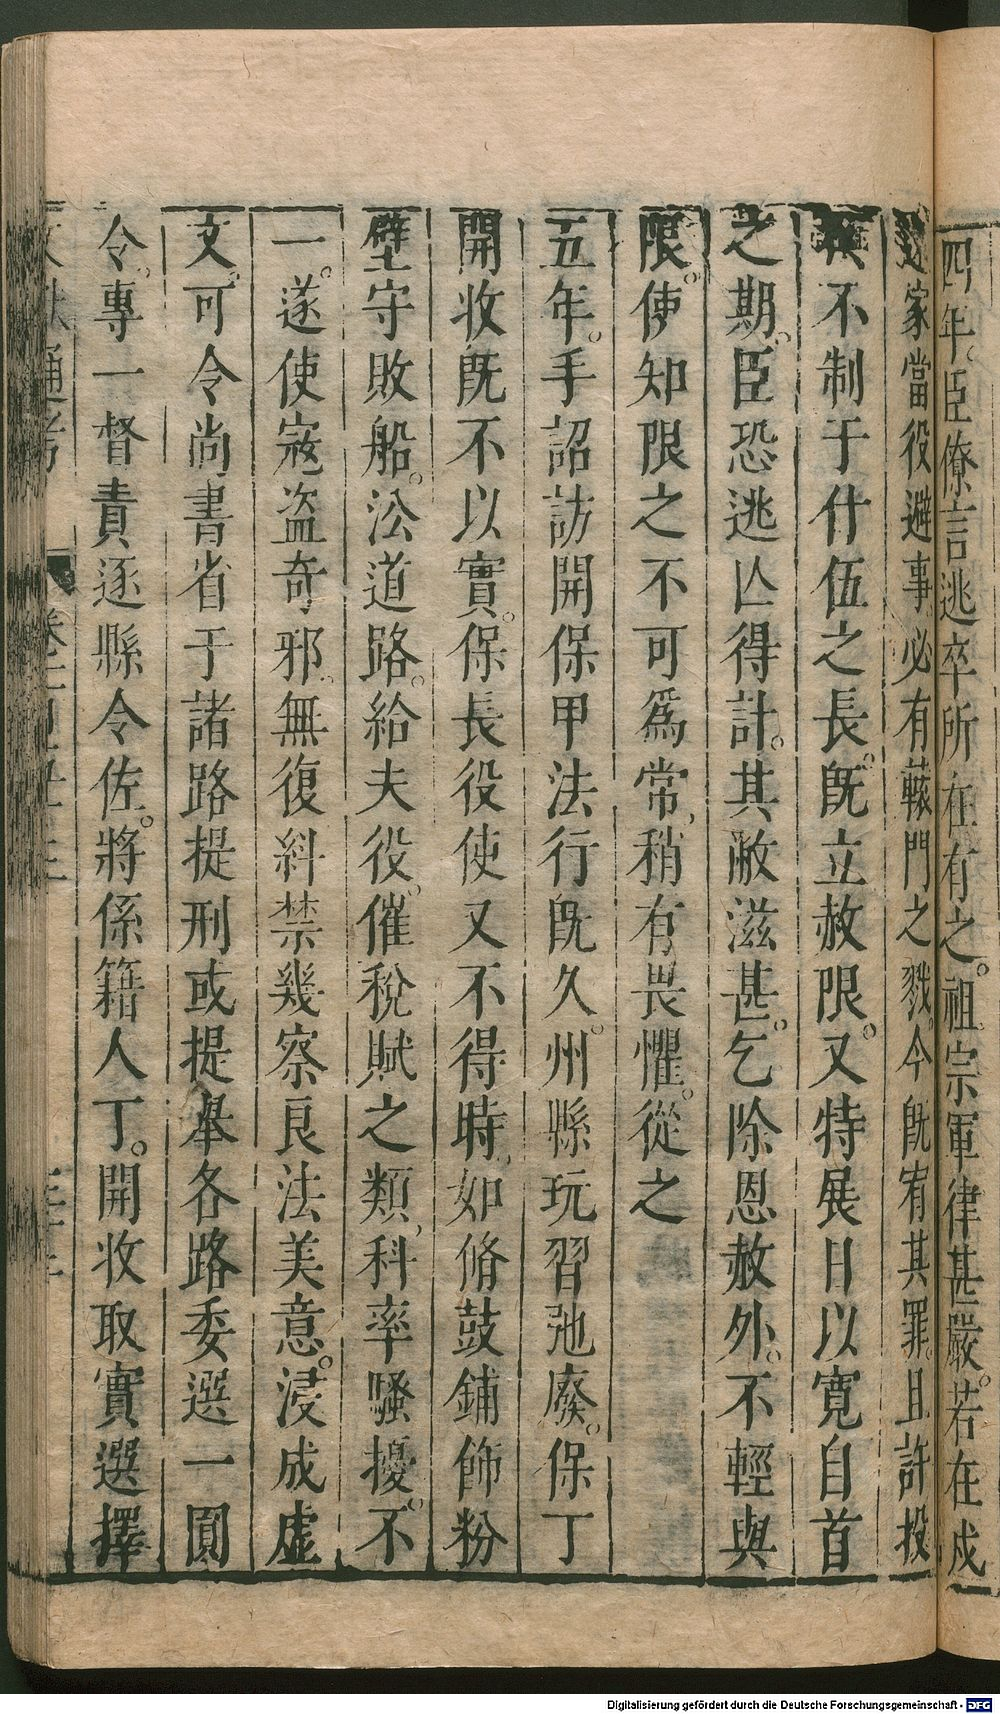 四年。臣僚言逃卒所在有之。祖宗軍律甚嚴。若在戍
家當役避事必有轅門之戮。今既宥其罪。且許投
不制于什伍之長。既立赦限。又特展日以寬自首
之期。臣恐逃亾得計。其敝滋甚。乞除恩赦外。不輕與
限。使知限之不可爲常、稍有畏懼。從之
五年。手詔訪開保甲法行既久。州縣玩習弛廢。保丁
開收既不以實。保長役使又不得時、如脩鼓鋪飾粉
壁守敗船。㳂道路。給夫役。催稅賦之類、科率騷擾。不
一。遂使寇盜奇邪、無復糾禁幾察良法美意。浸成虛
文。可令尚書省于諸路提刑或提舉各路委選一圓
令。專一督責逐縣令佐。將係籍人丁。開收取實選擇
Digitalisierung gefördert durch die Deutsche Forschungsgemeinschaft - DFG